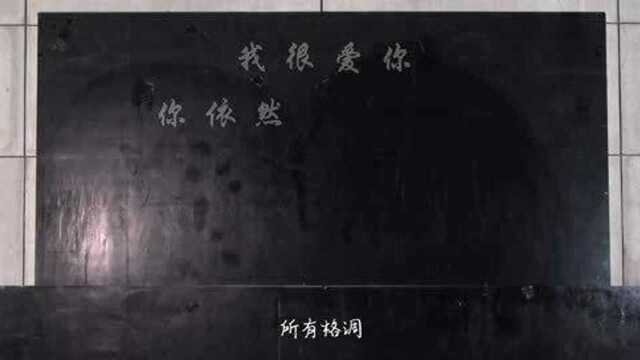 我很爱你
你依然
所有格调